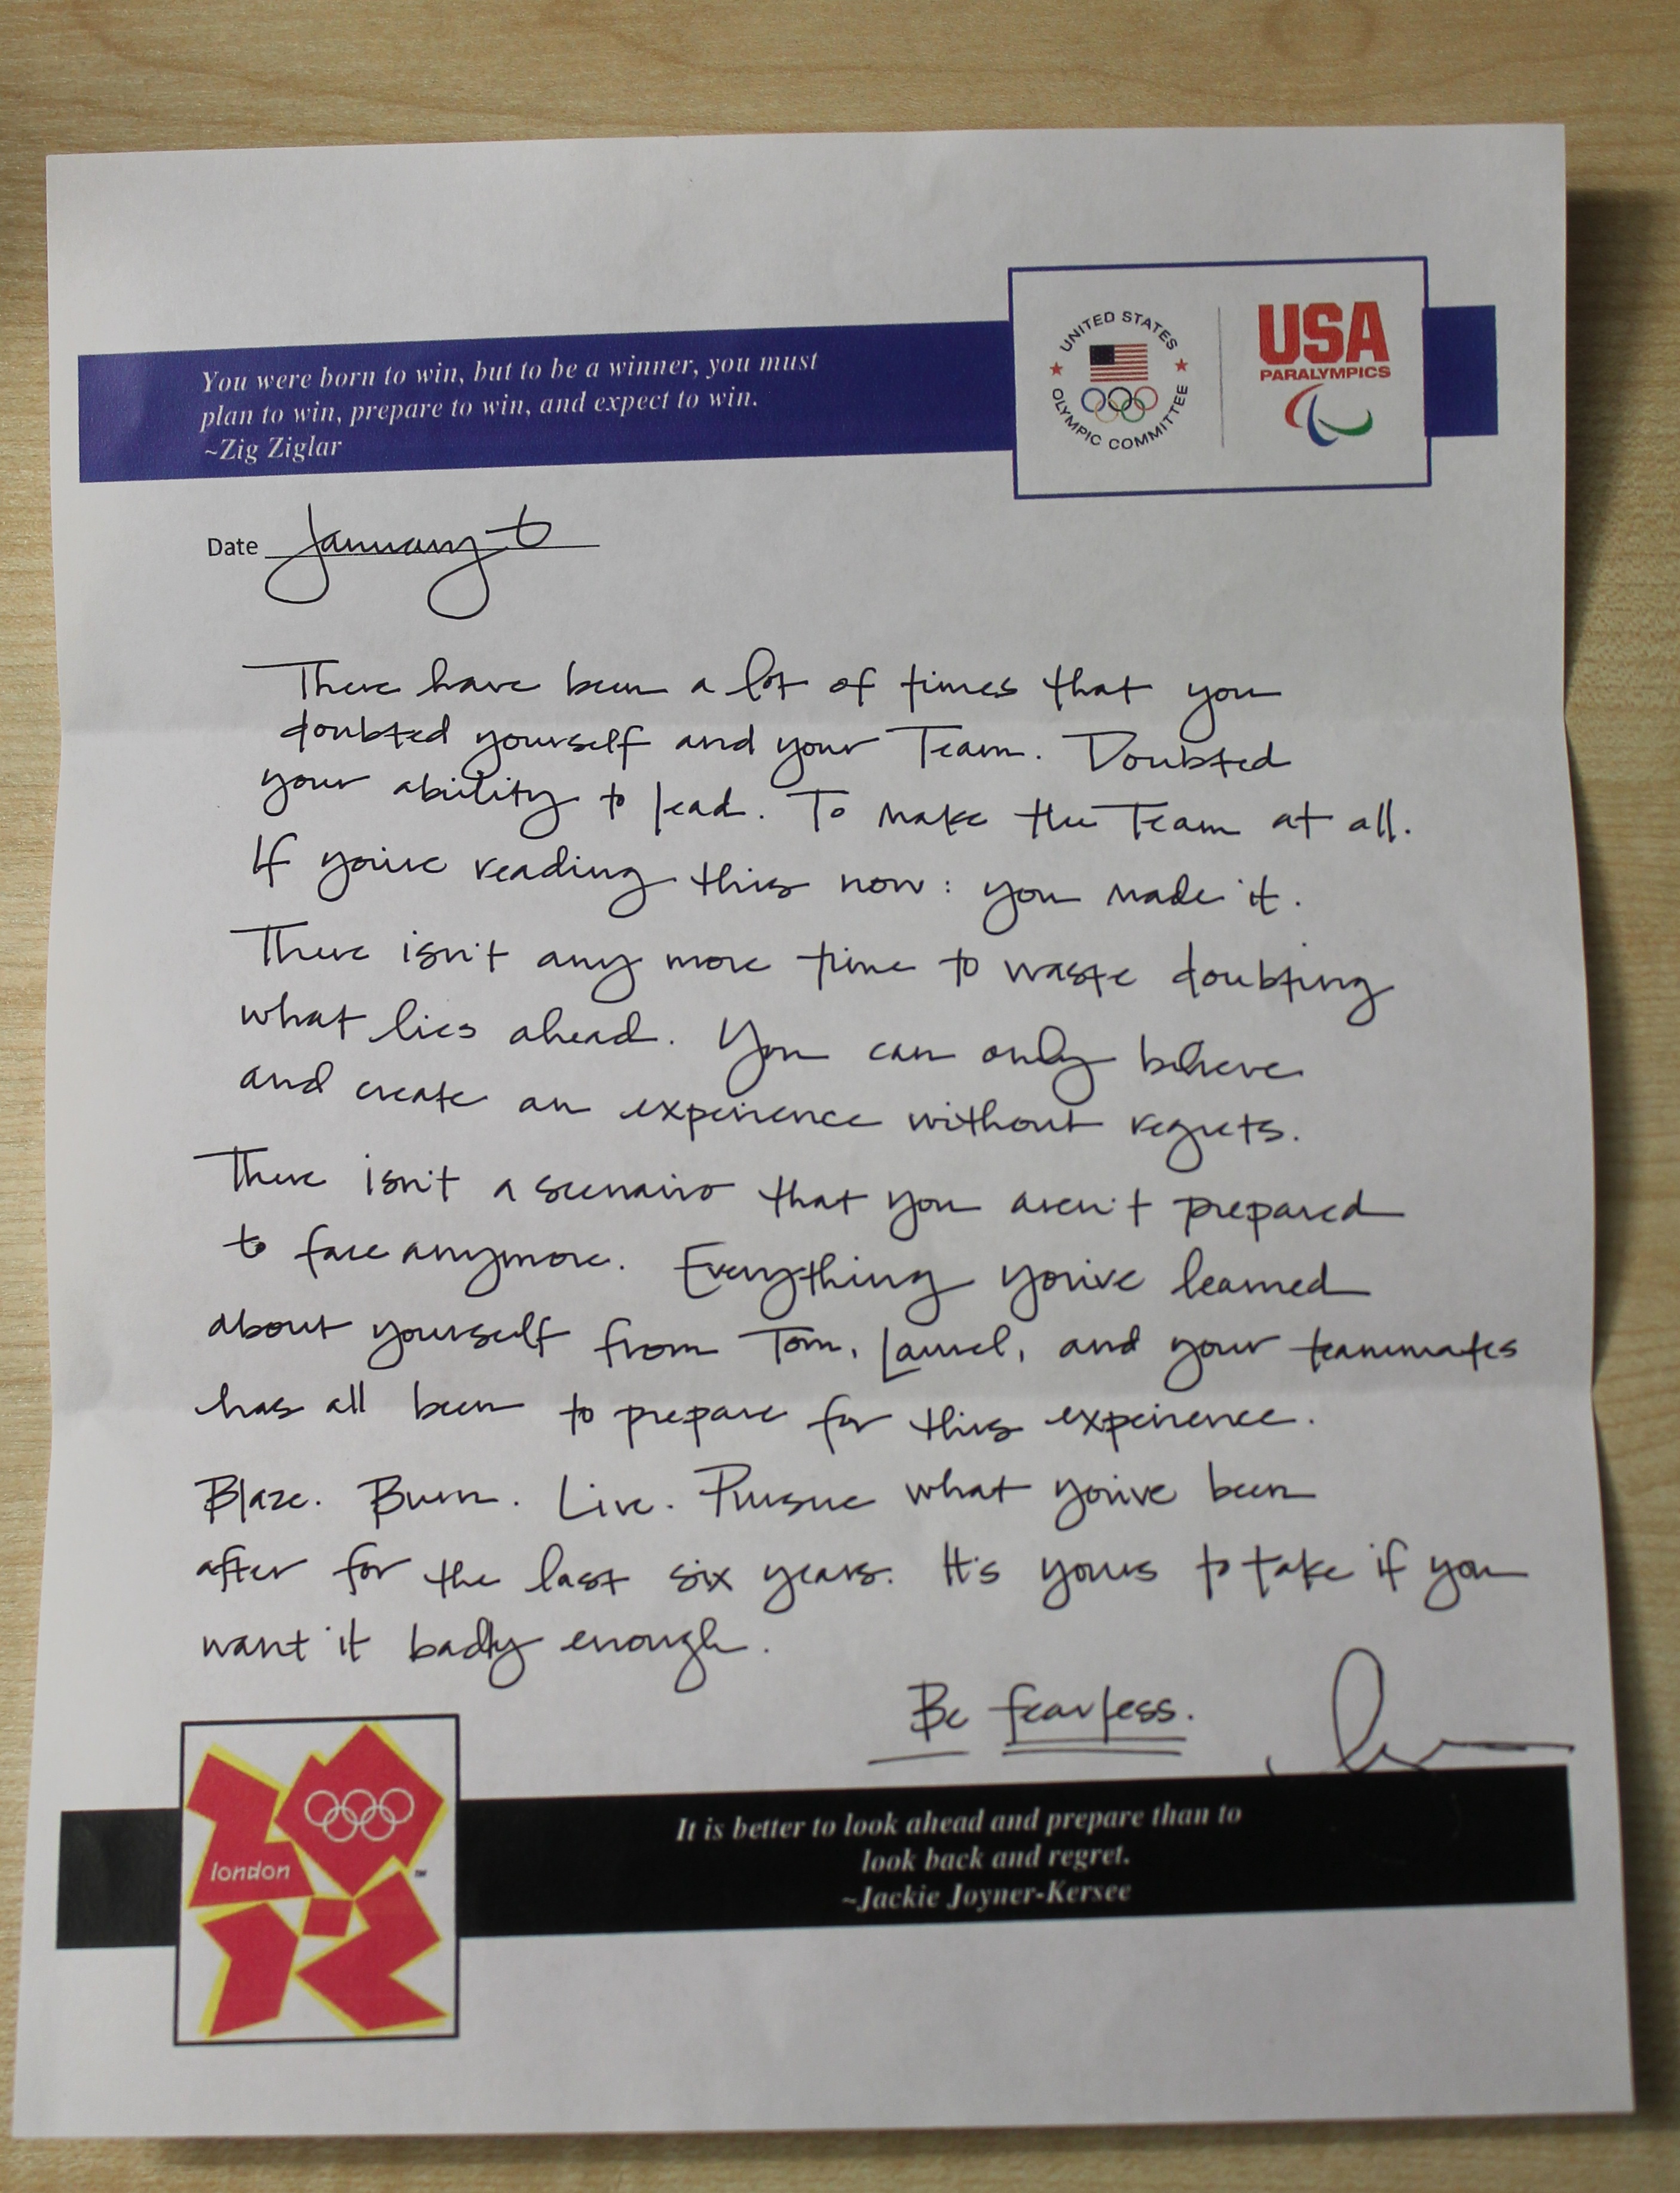 You were born to win, but to be a winner, you must
plan to win, prepare to win, and expect to win.
~Zig Ziglar
UNITED STATES
OLYMPIC COMMITTEE
USA
PARALYMPICS
Date January 6
There have been a lot of times that you
doubted yourself and your Team. Doubted
your ability to lead. To make the Team at all.
If you're reading this now: you made it.
There isn't any more time to waste doubting
what lies ahead. You can only believe
and create an experience without regrets.
There isn't a scenario that you aren't prepared
to face anymore. Everything you've learned
about yourself from Tom, Laurel, and your teammates
has all been to prepare for this experience.
Blaze. Burn. Live. Pursue what you've been
after for the last six years. It's yours to take if you
want it badly enough.
Be fearless.
london
TM
It is better to look ahead and prepare than to
look back and regret.
~Jackie Joyner-Kersee